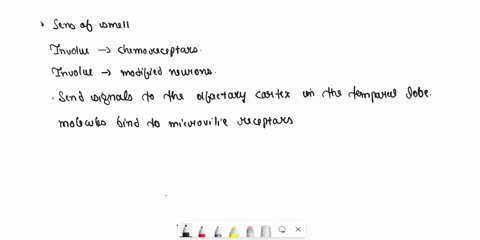 • Sens of smell
Involve → chemoreceptors.
Involve → modified neurons.
• Send signals to the olfactory cortex in the temporal lobe.
molecules bind to microvilie receptors